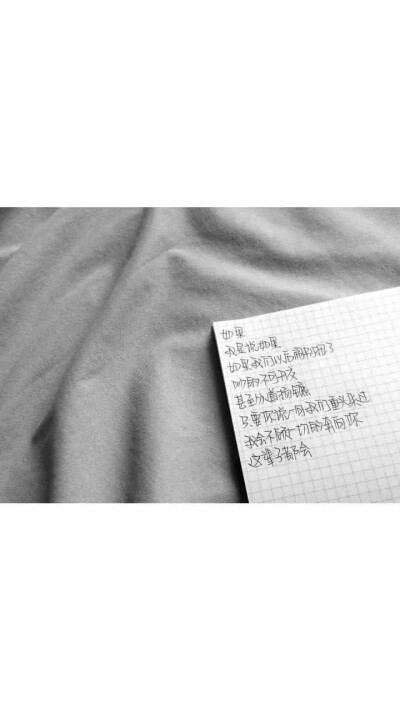 如果
我是说如果
如果我们以后闹掰了
吵的不可开交
甚至分道扬镳
只要你说一句我们重头来过
我会不顾一切的奔向你
这辈子都会